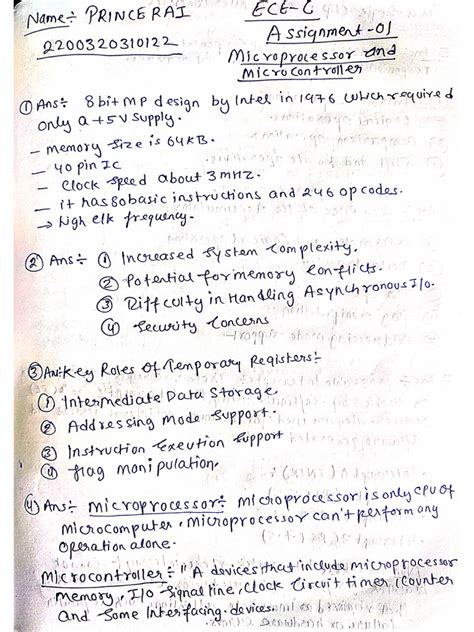 Name:- PRINCE RAI
ECE-C
2200320310122
Assignment-01
Microprocessor and
Microcontroller
① Ans÷ 8 bit MP design by Intel in 1976 which required
only a +5V Supply.
– memory size is 64KB.
– 40 pin IC
– Clock Speed about 3 MHZ.
– it has 80 basic instructions and 246 opcodes.
→ high clk frequency.
② Ans÷ ① Increased System Complexity.
② Potential for memory conflicts.
③ Difficulty in Handling Asynchronous I/o.
④ Security Concerns
③ Ans:- Key Roles Of Temporary Registers÷
① Intermediate Data Storage.
② Addressing Mode Support.
③ Instruction Exeution Support
④ flag monipulation.
④ Ans÷ Microprocessor÷ Microprocessor is only CPU of
Microcomputer. Microprocessor can't perform any
Operation alone.
Microcontroller÷ "A devices that include microprocessor
Memory, I/O Signal line, Clock Circuit timer, Counter
And Some Interfacing devices.